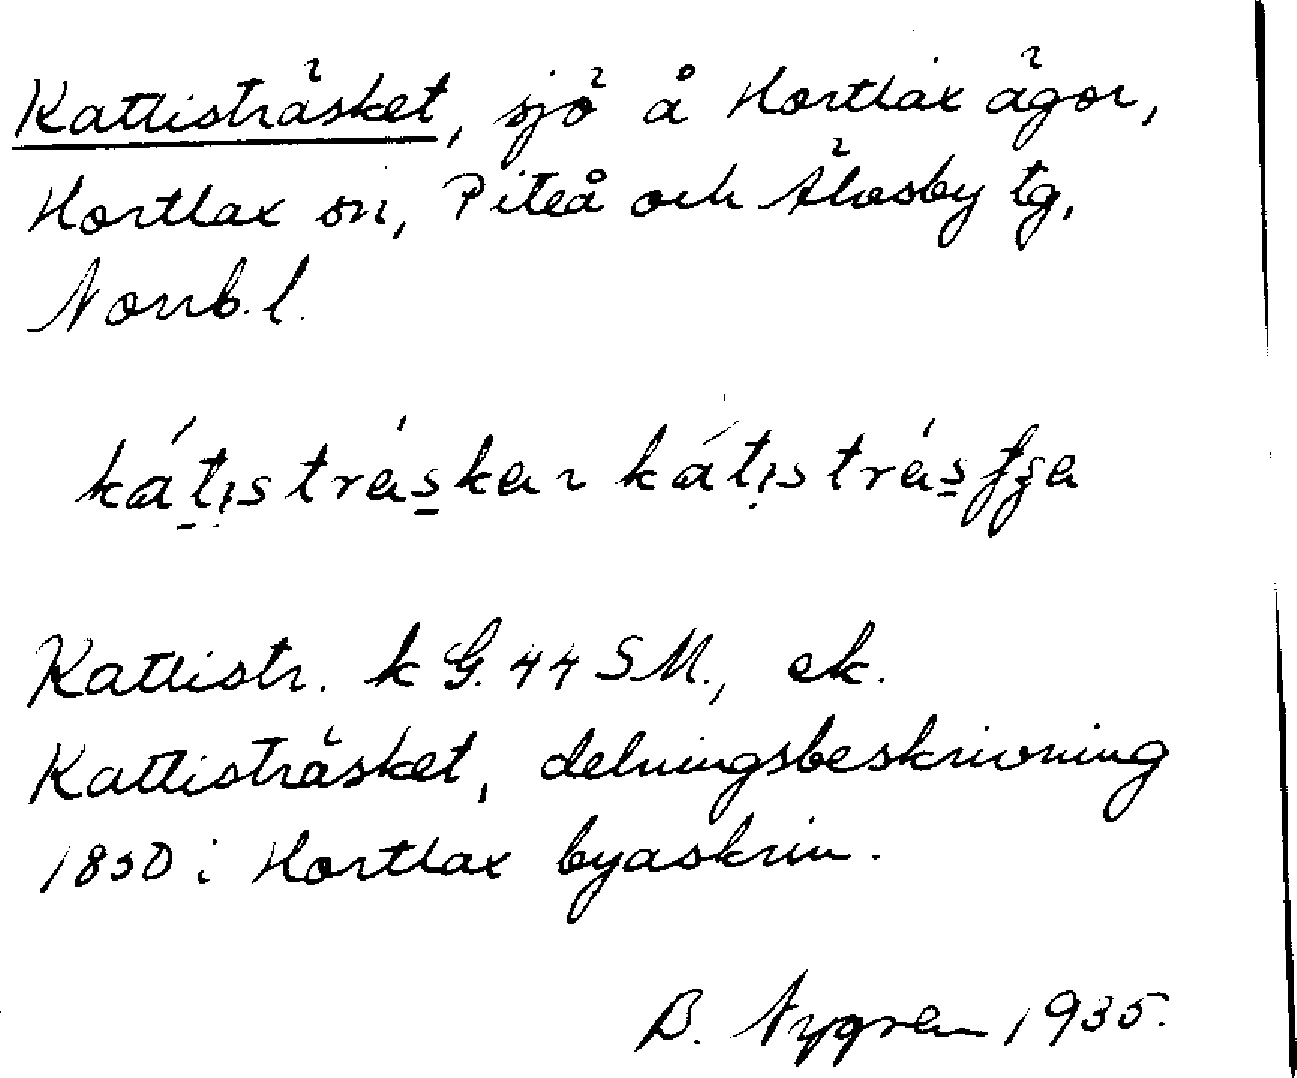 Kattisträsket, sjö å Hortlax ägor,
Hortlax sn, Piteå och Älvsby tg,
Norrb. l.
kátistráska ~ kátistrásʃʒa
Kattistr. k G. 44 SM., ek.
Kattisträsket, delningsbeskrivning
1850 i Hortlax byaskrin.
B. Nygren 1935.